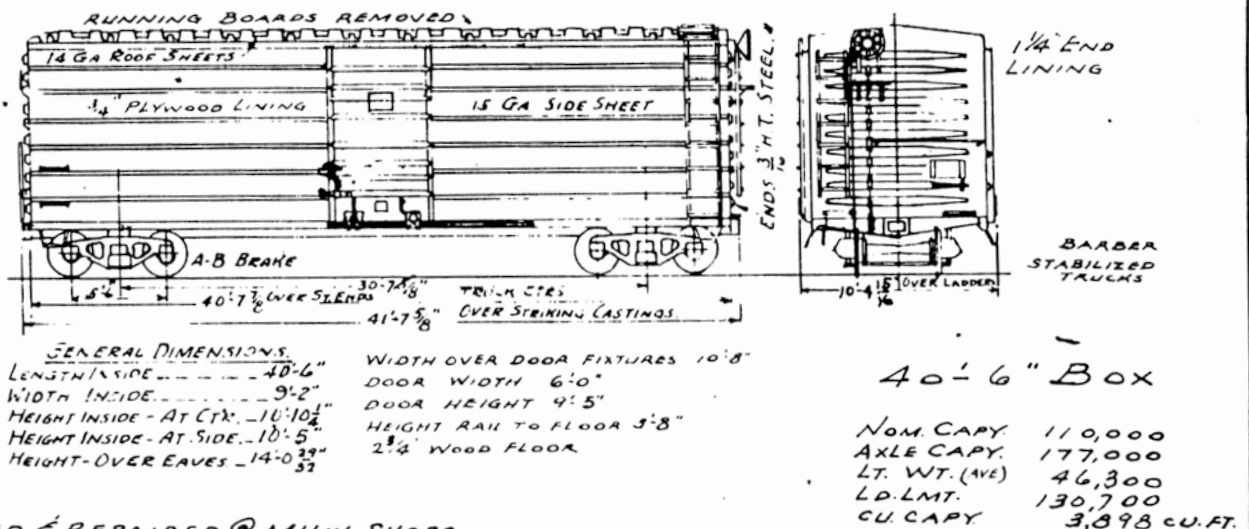 RUNNING BOARDS REMOVED
14 GA ROOF SHEETS
3/4" PLYWOOD LINING
15 GA SIDE SHEET
ENDS 3/16" H.T. STEEL.
1 1/4" END
LINING
A-B BRAKE
BARBER
STABILIZED
TRUCKS
5'-6"
TRUCK CTRS
40'-7 7/8 OVER ST. ENDS
10-4 15/16 OVER LADDERS
41'-7 5/8" OVER STRIKING CASTINGS.
GENERAL DIMENSIONS.
LENGTH INSIDE 40'-6"
WIDTH INSIDE 9'-2"
HEIGHT INSIDE - AT CTR. 10'-10 1/4"
HEIGHT INSIDE - AT SIDE 10'-5"
HEIGHT - OVER EAVES 14'-0 29/32"
WIDTH OVER DOOR FIXTURES 10'-8"
DOOR WIDTH 6'-0"
DOOR HEIGHT 9'-5"
HEIGHT RAIL TO FLOOR 3'-8"
2 3/4 WOOD FLOOR
40'-6" BOX
NOM. CAPY. 110,000
AXLE CAPY. 177,000
LT. WT. (AVE) 46,300
LD. LMT. 130,700
CU. CAPY 3,898 CU. FT.